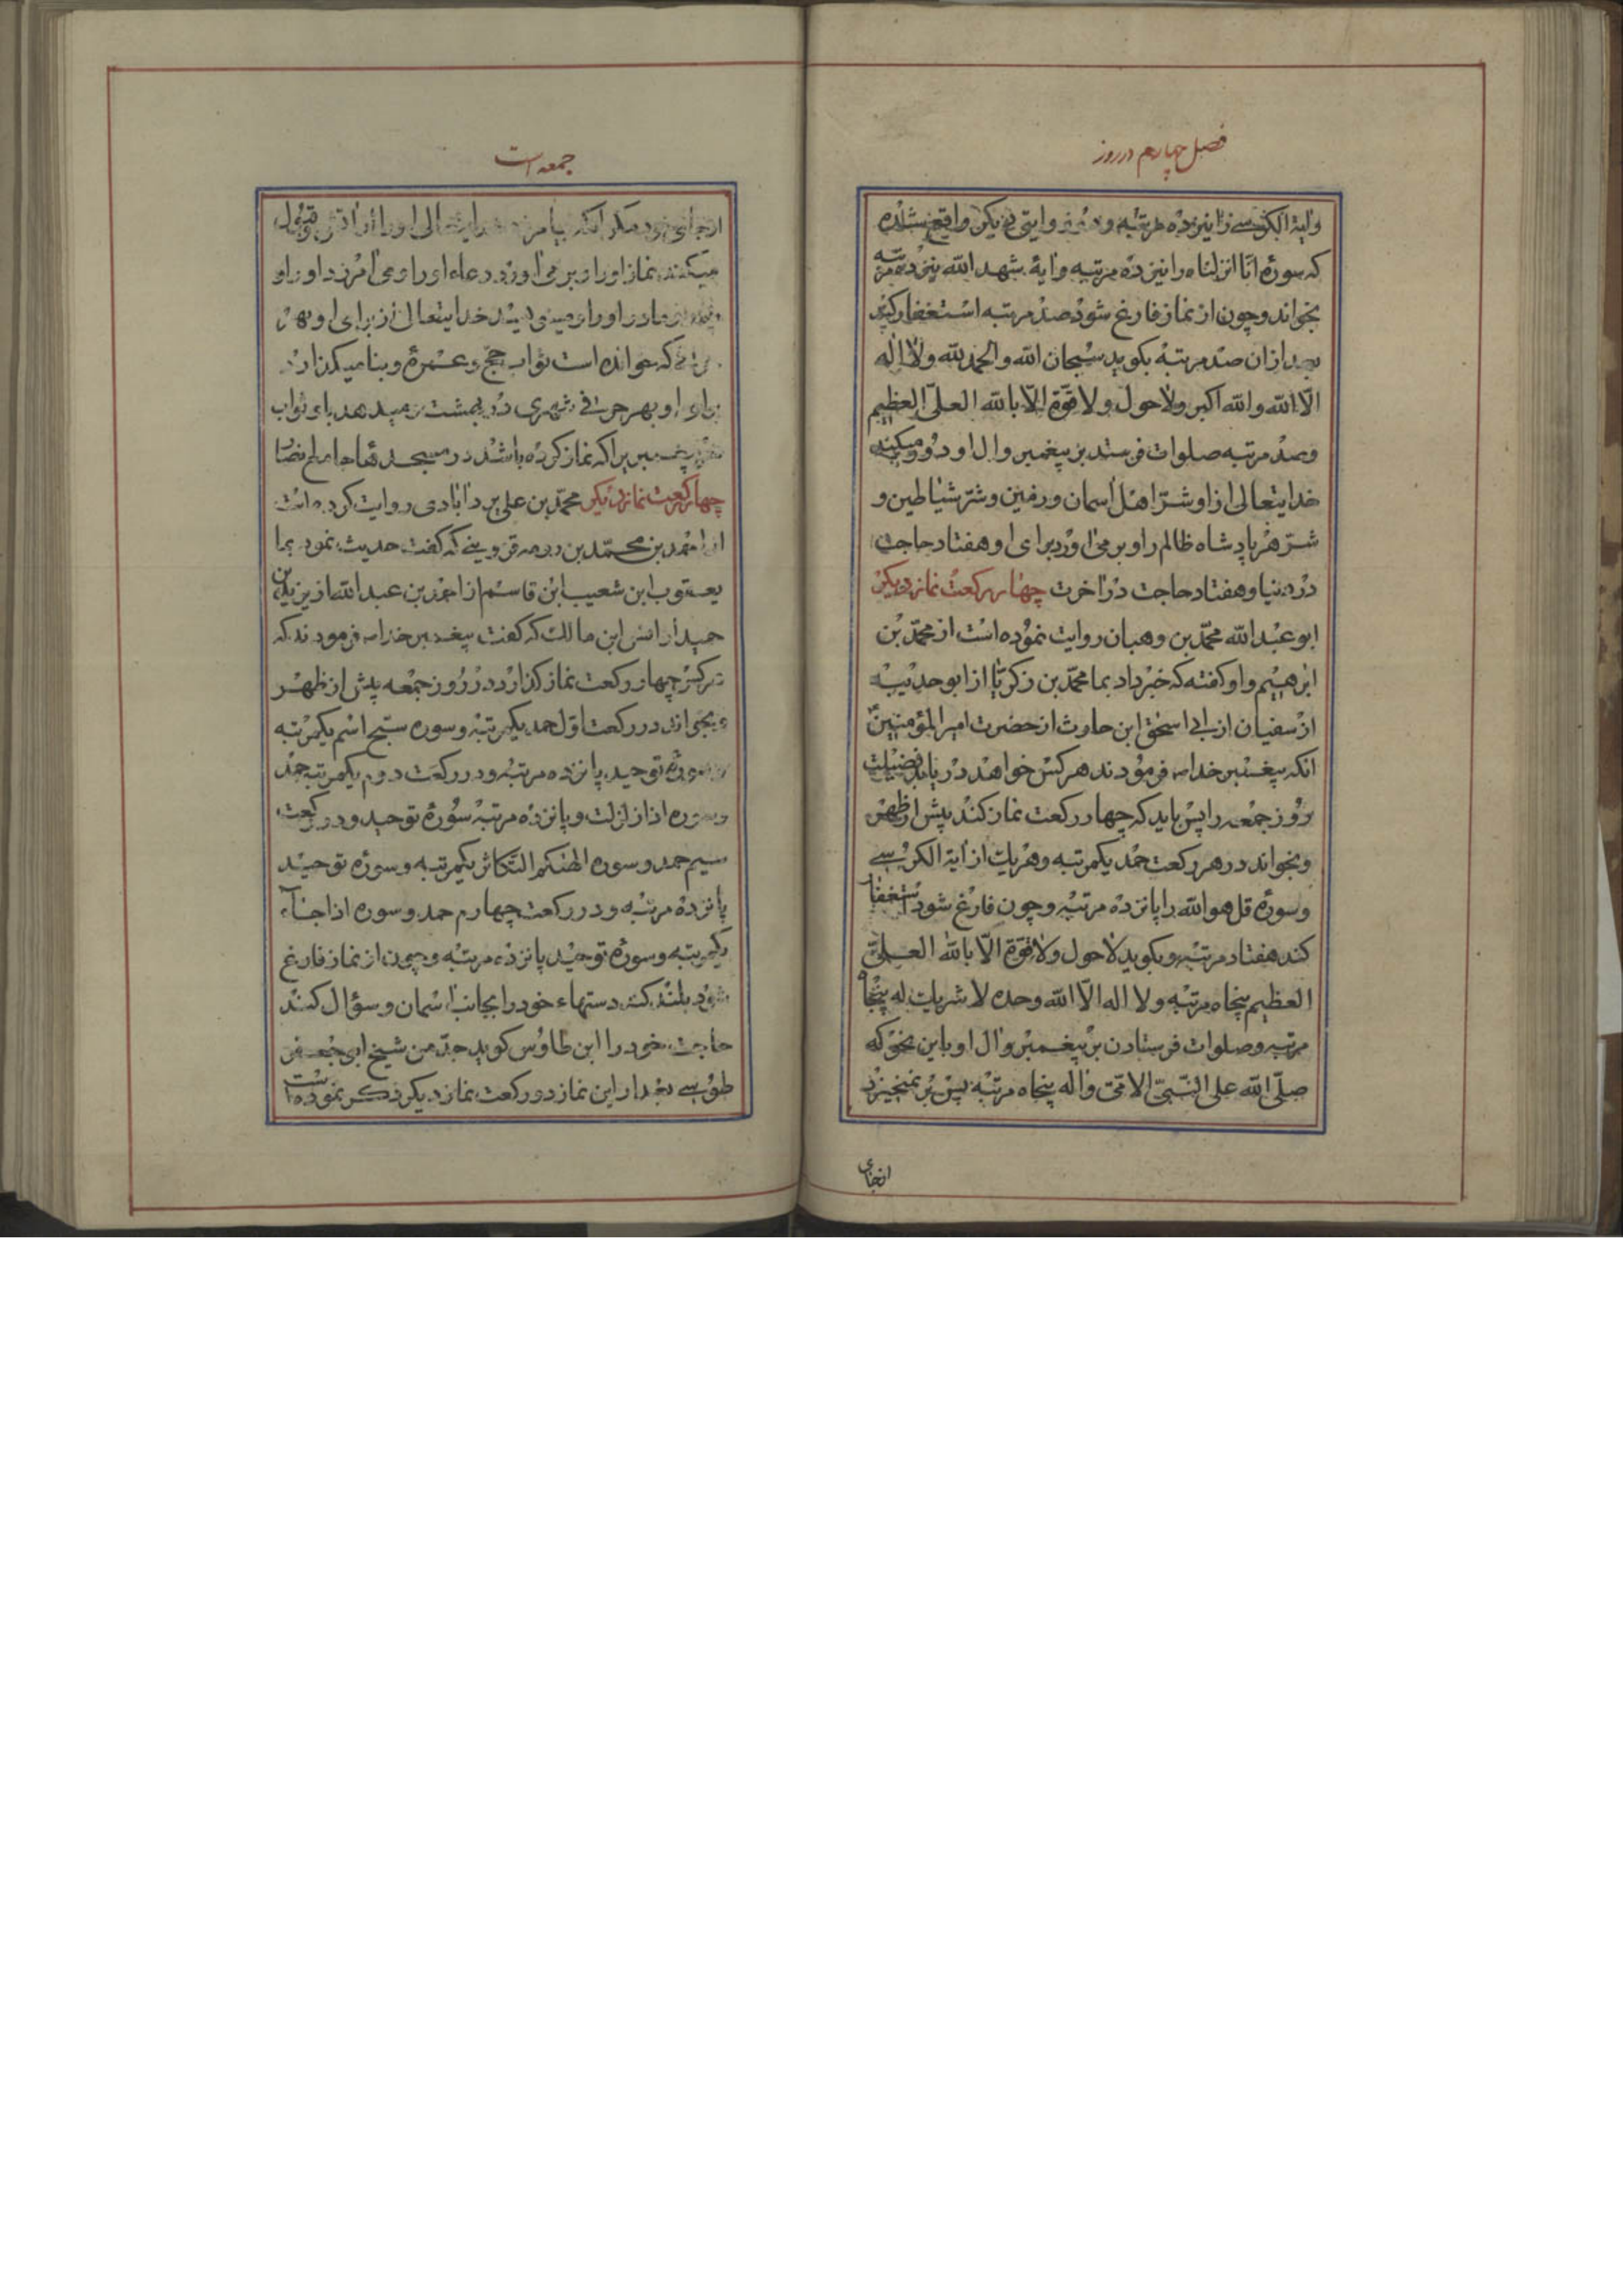 فصل چهارم در روز
وایة الکرسی را نیز ده مرتبه و در روایتی دیکر واقع شده
که سورهٔ انّا انزلناه را نیز ده مرتبه وایهٔ شهد الله نیز ده مرتبه
بخواند وچون از نماز فارغ شود صد مرتبه استغفار کند
بعد ازان صد مرتبه بکوید سبحان الله والحمد لله ولا اله
الّا الله والله اکبر ولا حول ولا قوّة الّا بالله العلیّ العظیم
وصد مرتبه صلوات فرستد بر پیغمبر وال او دور میکند
خدایتعالی از او شرّ اهل اسمان و زمین وشرّ شیاطین و
شرّ هر پادشاه ظالم را و بر می اورد برای او هفتاد حاجت
در دنیا وهفتاد حاجت در اخرت چهار رکعت نماز دیکر
ابو عبد الله محمّد بن وهبان روایت نموده است از محمّد بن
ابرهیم واو کفته که خبر داد بما محمّد بن زکریّا از ابو حدیبه
از سفیان از ابی اسحق ابن حارث از حضرت امیر المؤمنین
انکه پیغمبر خدا فرمودند هر کس خواهد در یابد فضیلت
روز جمعه را پس باید که چهار رکعت نماز کند پیش از ظهر
وبخواند در هر رکعت حمد یکمرتبه وهریک از ایة الکرسی
وسورهٔ قل هو الله را پانزده مرتبه وچون فارغ شود استغفار
کند هفتاد مرتبه وبکوید لا حول ولا قوّة الّا بالله العلیّ
العظیم پنجاه مرتبه ولا اله الّا الله وحده لا شریک له پنجاه
مرتبه وصلوات فرستادن بر پیغمبر وال او باین نحو که
صلّی الله علی النّبیّ الامّی واله پنجاه مرتبه پس بر نمیخیزد
انجای
جمعه است
ازجای خود مکر انکه بیامرزد خدایتعالی او را از اتش وقبول
میکند نماز او را و بر می اورد دعاء او را و می امرزد او را و
پدر و مادر او را و مینویسد خدایتعالی از برای او بهر
حرفی که خوانده است ثواب حجّ و عمره و بنا میکذارد
برای او بهر حرفی شهری در بهشت ومیدهد باو ثواب
پیغمبر را که نماز کرده باشد در مسجدها جامع
چهار رکعت نماز دیکر محمّد بن علی یزد ابادی روایت کرده است
از احمد بن محمّد بن قزوینی که کفت حدیث نمود بما
یعقوب ابن شعیب ابن قاسم از احمد بن عبد الله از یزید بن
حمید از انس ابن مالک که کفت پیغمبر خدا فرمودند که
هرکس چهار رکعت نماز کذارد در روز جمعه پیش از ظهر
وبخواند در رکعت اوّل حمد یکمرتبه وسوره سبّح اسم یکمرتبه
وسورهٔ توحید پانزده مرتبه ودر رکعت دوم یکمرتبه حمد
وسوره اذا زلزلت وپانزده مرتبه سورهٔ توحید ودر رکعت
سیم حمد وسوره الهیکم التّکاثر یکمرتبه وسورهٔ توحید
پانزده مرتبه ودر رکعت چهارم حمد وسوره اذا جاء
یکمرتبه وسورهٔ توحید پانزده مرتبه وچون از نماز فارغ
شود بلند کند دستهاء خود را بجانب اسمان وسؤال کند
حاجت خود را ابن طاوس کوید جدّ من شیخ ابی جعفر
طوسی بعد از این نماز دو رکعت نماز دیکر ذکر نموده است